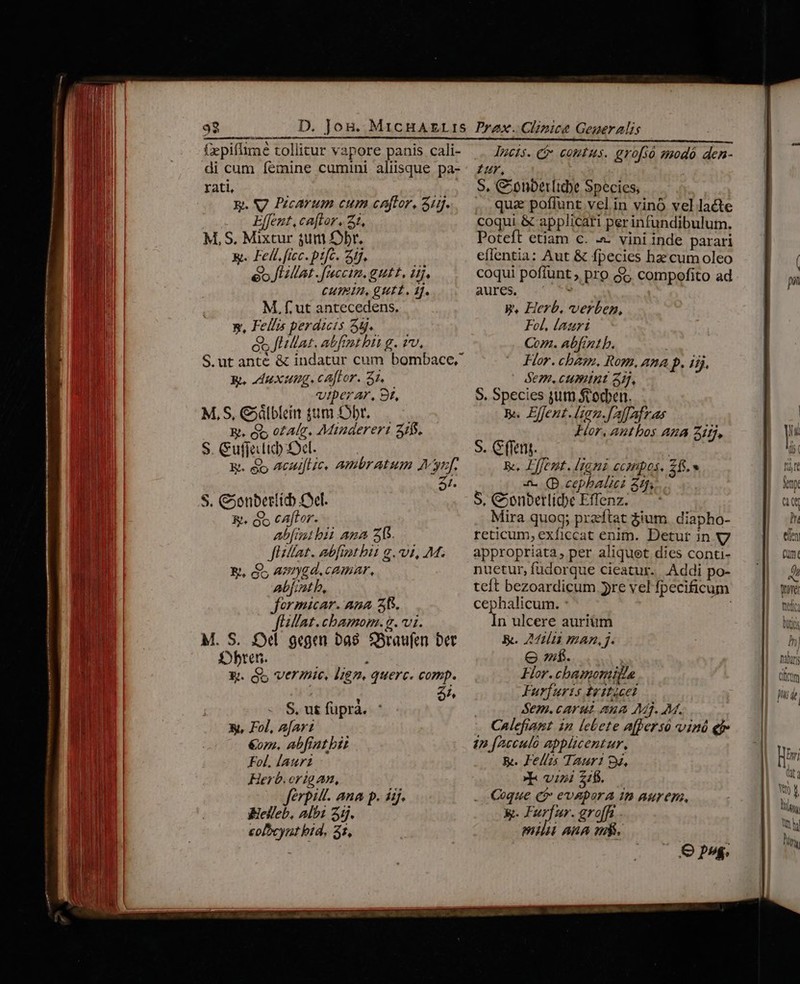 98 D. Joh. Michaelis Prax. Clinica Generalis
sæpissimè tollitur vapore panis cali-
di cum semine cumini aliisque pa-
rati.
℞. 🜄 Picarum cum castor. ʒiij.
Essent. castor. ʒi.
M. S. Mixtur zum Ohr.
℞. Fell. sicc. pisc. ʒij.
stillat. succin. gutt. iij.
cumin. gutt. ij.
M. s. ut antecedens.
℞. Fellis perdicis ʒij.
stillat. absinthii g. iv.
S. ut antè & indatur cum bombace.
℞. Auxung. castor. ʒi.
viperar. ℈i,
M. S. Sälblein zum Ohr.
℞. ovalg. Mindereri ʒiß.
S. Eusserlich Oel.
℞. acuistic. ambratum Myns.
ʒi.
S. Sonderlich Oel.
℞. castor.
absinthii ana ʒß.
stillat. absinthii g. vi, M.
℞. amygd. amar.
absinth.
formicar. ana ʒß.
stillat. chamom. g. vi.
M. S. Oel gegen das Brausen der
Ohren.
℞. vermic. lign. querc. comp.
ʒi,
S. ut suprà.
℞. Fol. asari
Com. absinthii
Fol. lauri
Herb. origan.
serpill. ana p. iij.
Helleb. albi ʒij.
colocynthid. ʒi,
Incis. & contus. grossò modò den-
tur.
S. Sonderliche Species,
quæ possunt vel in vinô vel lacte
coqui & applicari per infundibulum.
Potest etiam c. vini inde parari
essentia: Aut & species hæ cum oleo
coqui possunt, pro composito ad
aures.
℞. Herb. verben.
Fol. lauri
Com. absinth.
Flor. cham. Rom. ana p. iij.
Sem. cumini ʒij.
S. Species zum Kochen.
℞. Essent. lign. sassafras
Flor. anthos ana ʒiij.
S. Essenz.
℞. Essent. ligni compos. ʒß.
cephalici ʒij.
S. Sonderliche Essenz.
Mira quoq; præstat ♁ium diapho-
reticum, exsiccat enim. Detur in 🜄
appropriata, per aliquot dies conti-
nuetur, sudorque cieatur. Addi po-
test bezoardicum ♃re vel specificum
cephalicum.
In ulcere aurium
℞. Milii man. j.
mß.
Flor. chamomillæ
Furfuris tritícei
Sem. carui ana Mj. M.
Calefiant in lebete aspersô vinô &
in sacculô applicentur.
℞. Fellis Tauri ℈i.
vini ʒiß.
Coque & evapora in aurem.
℞. Furfur. grossi
milii ana mß.
pug.